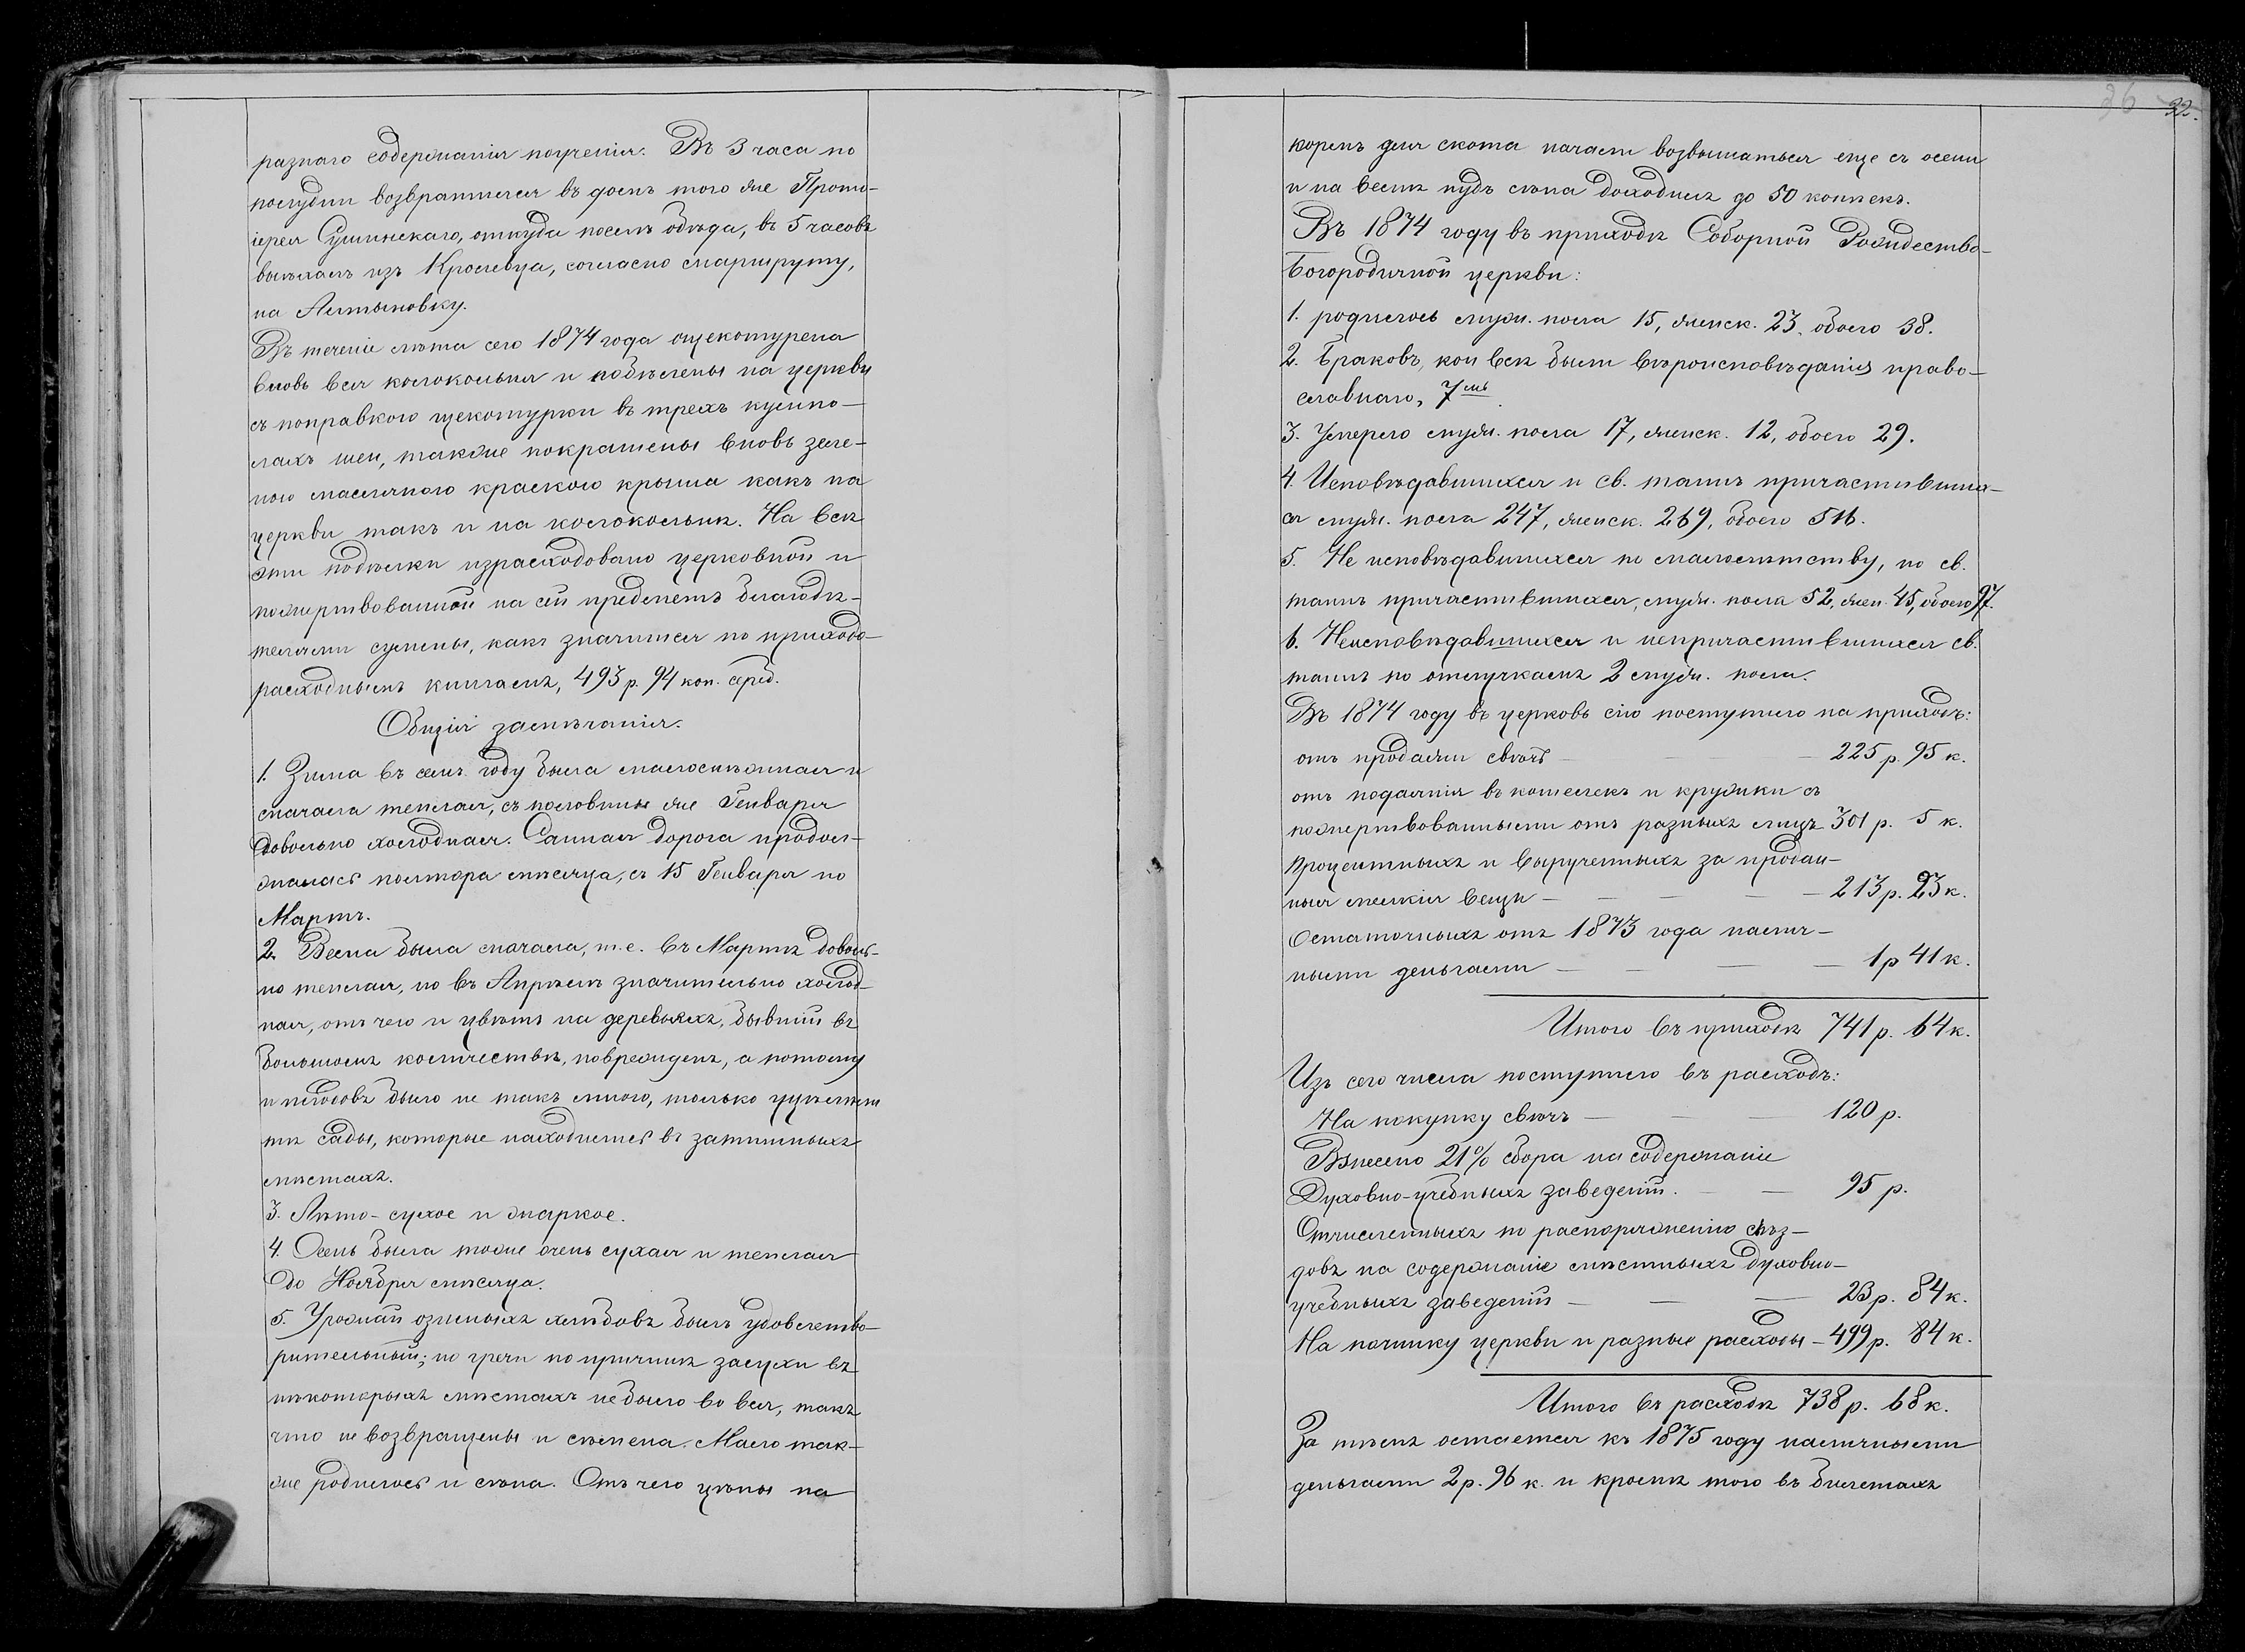 разнаго содержанія поученія. Въ 3 часа по
полудни возвратился въ домъ того же Прото-
іерея Сушинскаго, откуда послѣ обѣда, въ 5 часовъ
выѣхалъ изъ Кролевца, согласно маршруту,
на Алтыновку.
Въ теченіе лѣта сего 1874 года ощекатурена
вновь вся колокольня и побѣлены на церкви
съ поправкою щекотурки въ трехъ купло-
лахъ шеи, также покрашены вновь зеле-
ною масляною краскою крыша какъ на
церкви такъ и на колокольнѣ. На всѣ
эти подѣлки израсходовано церковной и
пожертвованной на сей предметъ благодѣ-
телями суммы, какъ значится по приходо-
расходнымъ книгамъ, 493 р. 94 коп. сереб.
Общія замѣчанія.
1. Зима въ семъ году была малоснѣжная и
сначала теплая, съ половины же Генваря
довольно холодная. Санная дорога продол-
жалась полтора мѣсяца, съ 15 Генваря по
Мартъ.
2. Весна была сначала, т.е. въ Мартѣ доволь-
но теплая, но въ Апрѣлѣ значительно холод-
ная, отъ чего и цвѣтъ на деревьяхъ, бывшій въ
большомъ количествѣ, поврежденъ, а потому
и плодовъ было не такъ много, только уцѣлѣли
тѣ сады, которые находились въ затишныхъ
мѣстахъ.
3. Лѣто - сухое и жаркое.
4. Осень была тоже очень сухая и теплая
до Ноября мѣсяца.
5. Урожай озимыхъ хлѣбовъ былъ удовлетво-
рительный; но гречи по причинѣ засухи въ
нѣкоторыхъ мѣстахъ не было во вся, такъ
что не возвращены и сѣмена. Мало так-
же родилось и сѣна. Отъ чего цѣны на
36 32.
кормъ для скота начали возвышаться еще съ осени
и на веснѣ пудъ сѣна доходилъ до 50 копѣекъ.
Въ 1874 году въ приходѣ Соборной Рождество-
Богородичной церкви:
1. родилось муж. пола 15, женск. 23, обоего 38.
2. Браковъ, кои всѣ были вѣроисповѣданія право-
славнаго, 7мь.
3. Умерло муж. пола 17, женск. 12, обоего 29.
4. Исповѣдавшихся и св. таинъ причастивших-
ся муж. пола 247, женск. 269, обоего 516.
5. Не исповѣдавшихся по малолѣтству, но св.
таинъ причастившихся, муж. пола 52, жен. 45, обоего 97.
6. Неисповѣдавшихся и непричастившихся св.
таинъ по отлучкамъ 2 муж. пола.
Въ 1874 году въ церковь сію поступило на приходъ:
отъ продажи свѣчъ — — — 225 р. 95 к.
отъ подаянія въ кошелекъ и кружки съ
пожертвованными отъ разныхъ лицъ 301 р. 5 к.
Процентныхъ и вырученныхъ за продан-
ныя мелкія вещи — — — — 213 р. 23 к.
Остаточныхъ отъ 1873 года налич-
ными деньгами — — — — 1 р 41 к.
Итого въ приходѣ 741 р. 64 к.
Изъ сего числа поступило въ расходъ:
На покупку свѣчъ — — — 120 р.
Взнесено 21% сбора на содержаніе
Духовно-учебныхъ заведеній. — — 95 р.
Отчисленныхъ по распоряженію съѣз-
довъ на содержаніе мѣстныхъ духовно-
учебныхъ заведеній — — — 23 р. 84 к.
На починку церкви и разные расходы — 499 р. 84 к.
Итого въ расходѣ 738 р. 68 к.
За тѣмъ остается къ 1875 году наличными
деньгами 2 р. 96 к. и кромѣ того въ билетахъ